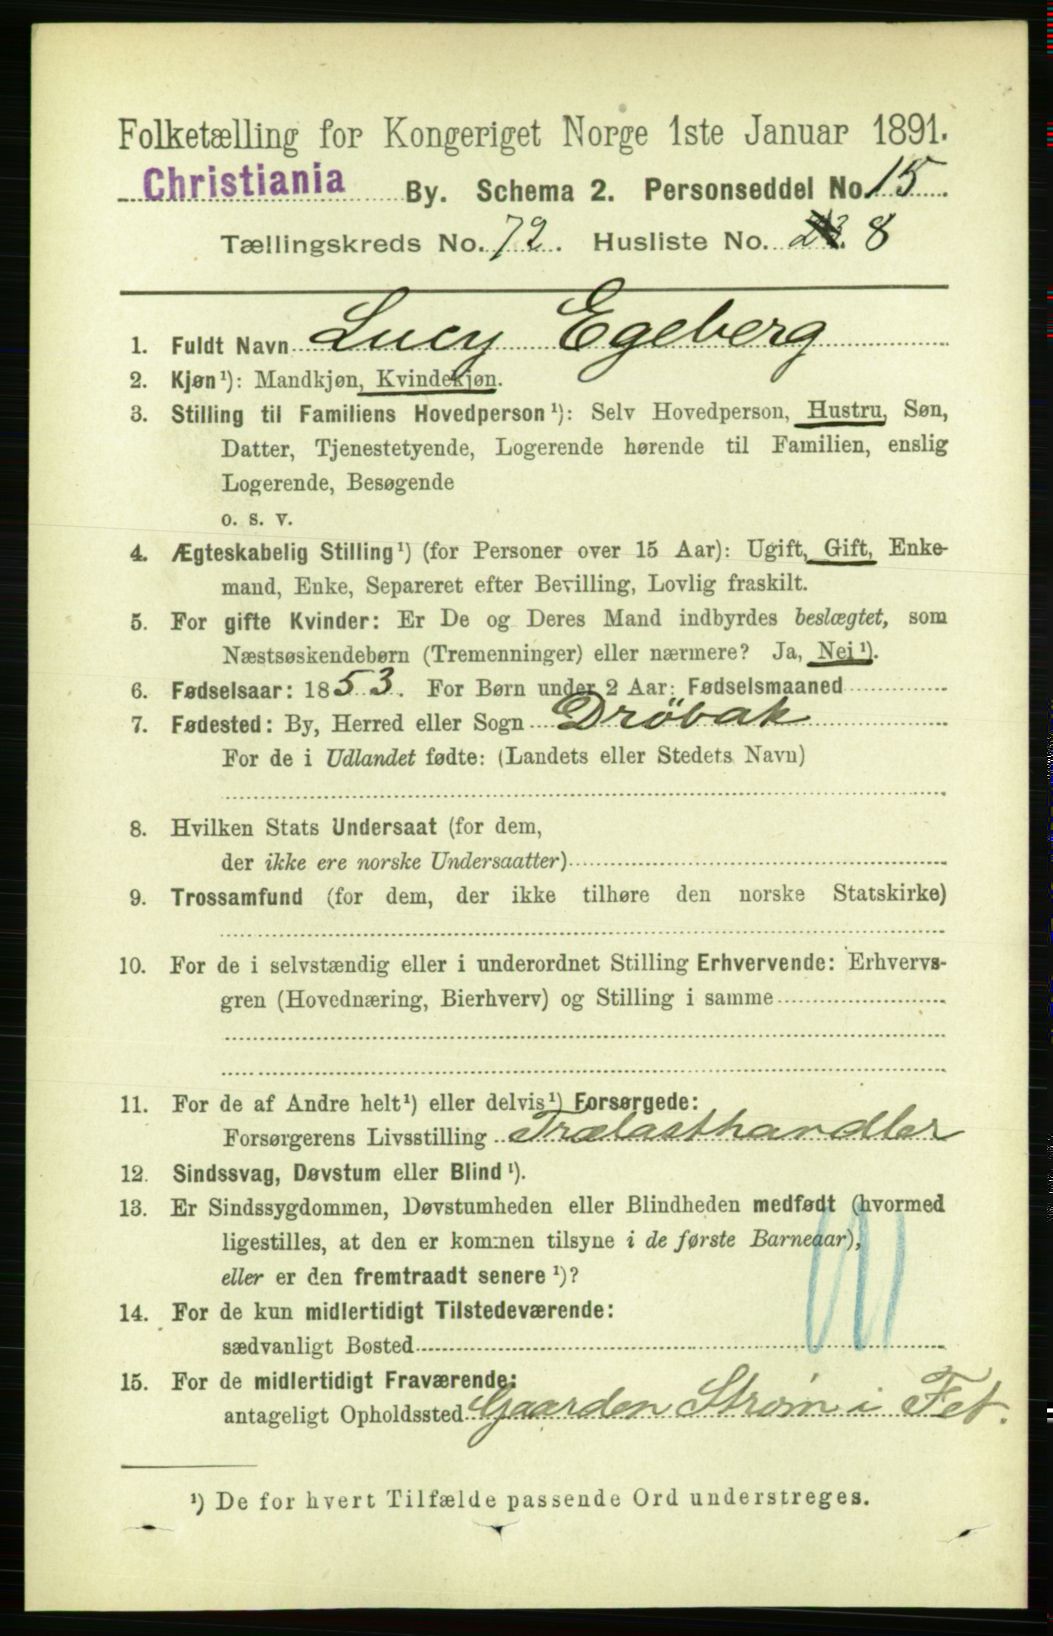 Folketælling for Kongeriget Norge 1ste Januar 1891.
Christiania By. Schema 2. Personseddel No. 15.
Tællingskreds No. 72. Husliste No. 8
1. Fuldt Navn Lucy Egeberg
2. Kjøn ¹): Mandkjøn, Kvindekjøn.
3. Stilling til Familiens Hovedperson ¹): Selv Hovedperson, Hustru, Søn,
Datter, Tjenestetyende, Logerende hørende til Familien, enslig
Logerende, Besøgende
o. s. v.
4. Ægteskabelig Stilling ¹) (for Personer over 15 Aar): Ugift, Gift, Enke-
mand, Enke, Separeret efter Bevilling, Lovlig fraskilt.
5. For gifte Kvinder: Er De og Deres Mand indbyrdes beslægtet, som
Næstsøskendebørn (Tremenninger) eller nærmere? Ja, Nei ¹).
6. Fødselsaar: 1853. For Børn under 2 Aar: Fødselsmaaned
7. Fødested: By, Herred eller Sogn Dröbak
For de i Udlandet fødte: (Landets eller Stedets Navn)
8. Hvilken Stats Undersaat (for dem,
der ikke ere norske Undersaatter)
9. Trossamfund (for dem, der ikke tilhøre den norske Statskirke)
10. For de i selvstændig eller i underordnet Stilling Erhvervende: Erhvervs-
gren (Hovednæring, Bierhverv) og Stilling i samme
11. For de af Andre helt ¹) eller delvis ¹) Forsørgede:
Forsørgerens Livsstilling Trælasthandler
12. Sindssvag, Døvstum eller Blind ¹).
13. Er Sindssygdommen, Døvstumheden eller Blindheden medfødt (hvormed
ligestilles, at den er kommen tilsyne i de første Barneaar),
eller er den fremtraadt senere ¹)?
14. For de kun midlertidigt Tilstedeværende:
sædvanligt Bosted
15. For de midlertidigt Fraværende:
antageligt Opholdssted Gaarden Strøm i Fet.
¹) De for hvert Tilfælde passende Ord understreges.